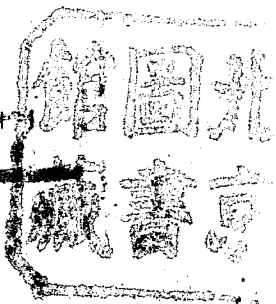 北京
圖書
館藏